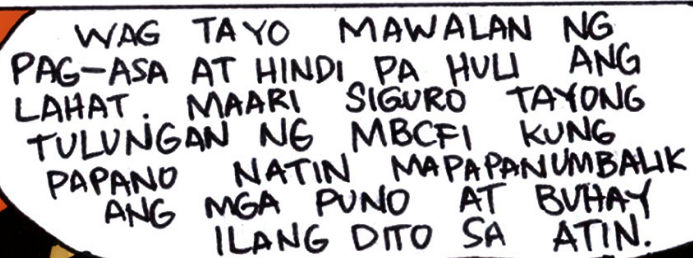 WAG TAYO MAWALAN NG
PAG-ASA AT HINDI PA HULI ANG
LAHAT. MAARI SIGURO TAYONG
TULUNGAN NG MBCFI KUNG
PAPANO NATIN MAPAPANUMBALIK
ANG MGA PUNO AT BUHAY
ILANG DITO SA ATIN.